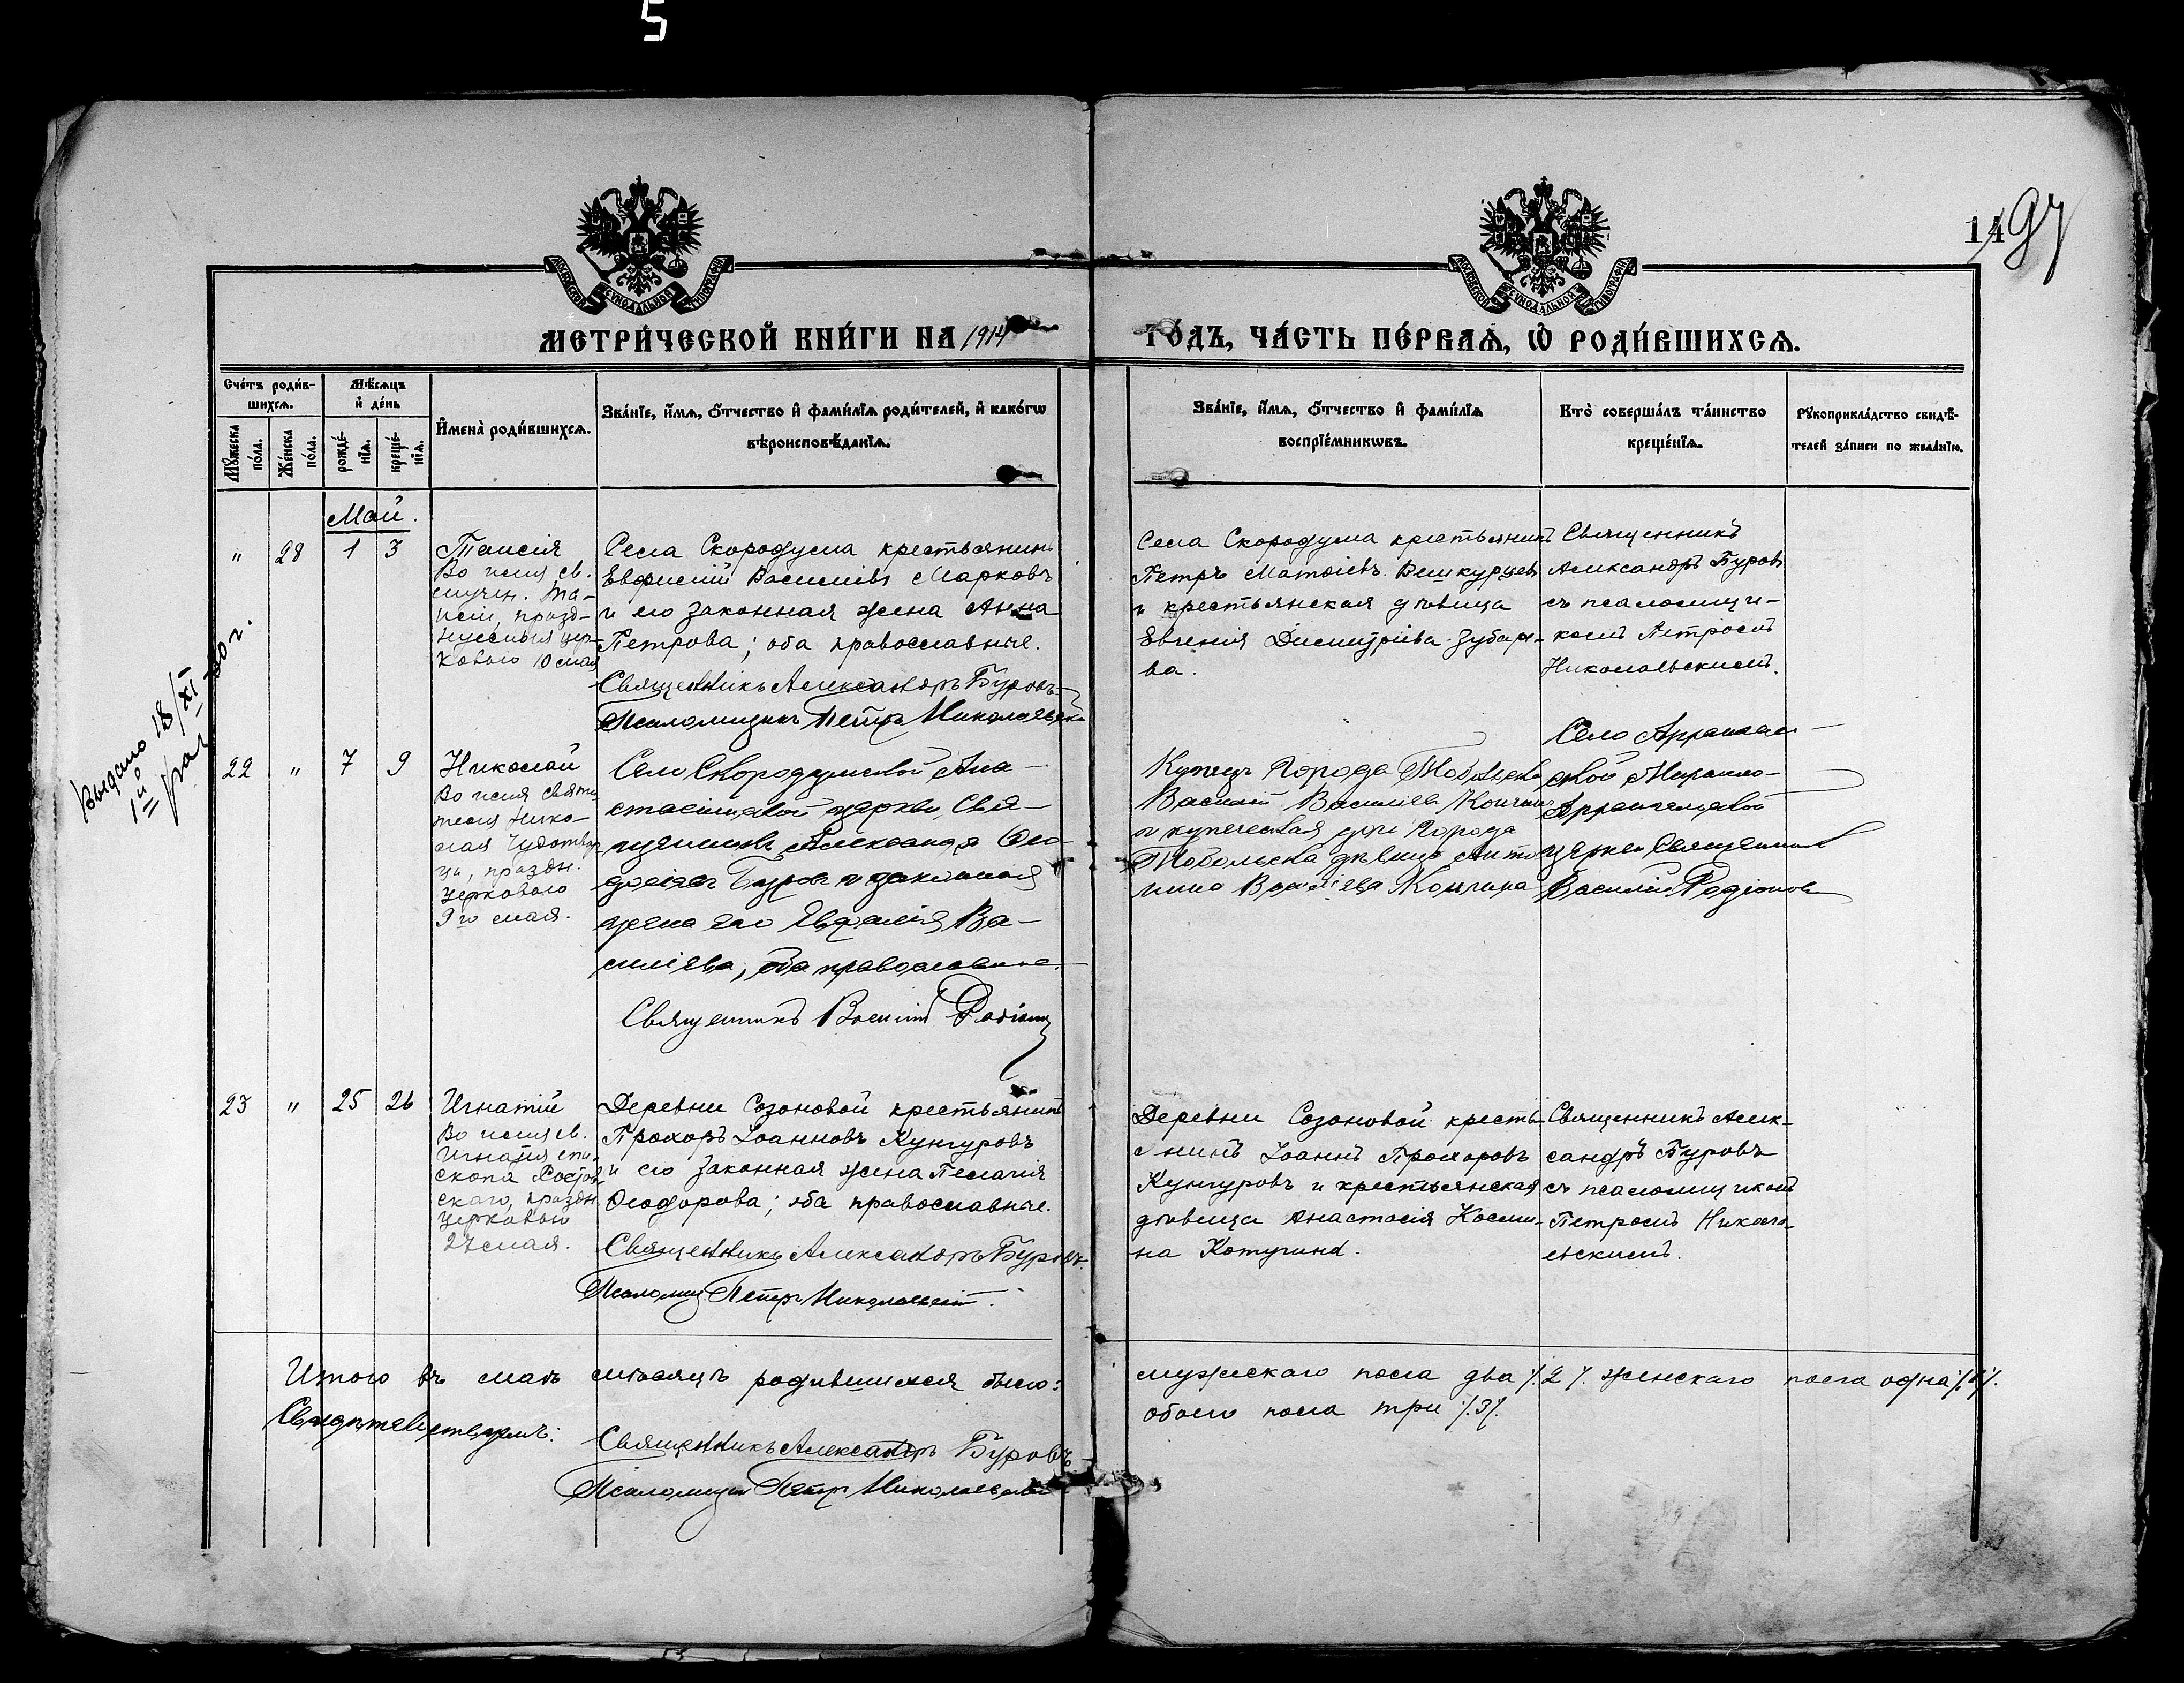 5
1497
МЕТРИ́ЧЕСКОЙ КНИ́ГИ НА 1914
ГО́ДЪ, ЧА́СТЬ ПЕ́РВАѦ, Ѽ РОДИ́ВШИХСѦ.
Сче́тъ роди́в-
шихсѧ.
Мѣ́сѧцъ
и҆ де́нь
Мꙋ́жеска
по́ла.
Же́нска
по́ла.
рожде́-
нїѧ.
креще́-
нїѧ.
И҆мена̀ роди́вшихсѧ.
Зва́нїе, и҆́мѧ, ѻ҆́тчество и҆ фами́лїѧ роди́телей, и҆ како́гѡ
вѣроисповѣ́данїѧ.
Зва́нїе, и҆́мѧ, ѻ҆́тчество и҆ фами́лїѧ
воспрїе́мникѡвъ.
Кто̀ соверша́лъ та́инство
креще́нїѧ.
Рꙋкоприкла́дство свидѣ́-
телей за́писи по жела́нїю.
Май.
" 28 1 3
Таисія
Во имя св.
мучен. Та-
исіи, празд-
нуемыя цер-
ковью 10 мая
Села Скородума крестьянинъ
Евфимій Василіевъ Марковъ
и его законная жена Анна
Петрова; оба православные.
Священникъ Александръ Буровъ
Псаломщикъ Петръ Никольскій
Села Скородума крестьянинъ
Петръ Матѳіевъ Вешкурцевъ
и крестьянская дѣвица
Евгенія Димитріева Зубаре-
ва.
Священникъ
Александръ Буровъ
съ псаломщи-
комъ Петромъ
Никольскимъ.
Выдано 18/XI
1й раз
22 " 7 9
Николай
Во имя святи-
теля Нико-
лая Чудотвор-
ца, празды.
церковью
9го мая.
Села Скородумской
церкви, Свя-
щенникъ Александръ Ѳео-
досіевъ Буровъ и законная
жена его Ва-
силіева, оба православные.
Священникъ Василій Родіонов
Купецъ Города Тобольска
Василій Василіев
и купеческая дочь Города
Тобольска дѣвица Анто-
нина Василіева
Село
ской Михаило-
Архангельской
церкви Священник
Василій Родіонов
23 " 25 26
Игнатій
Во имя св.
Игнатія епи-
скопа Ростов-
скаго, празды.
церковью
27 мая.
Деревни Созоновой крестьянинъ
Прохоръ Іоанновъ Кунгуровъ
и его законная жена Пелагія
Ѳеодорова; оба православные.
Священникъ Александръ Буровъ.
Псаломщ. Петръ Никольскій.
Деревни Созоновой кресть-
янинъ Іоаннъ Прохоровъ
Кунгуровъ и крестьянская
дѣвица Анастасія Косми-
на Котугина.
Священникъ Алек-
сандръ Буровъ
съ псаломщикомъ
Петромъ Николь-
скимъ.
Итого въ маѣ мѣсяцѣ родившихся было:
мужескаго пола два /2/. женскаго пола одна /1/.
обоего пола три /3/.
Свидѣтельствуемъ:
Священникъ Александръ Буровъ
Псаломщикъ Петръ Никольскій